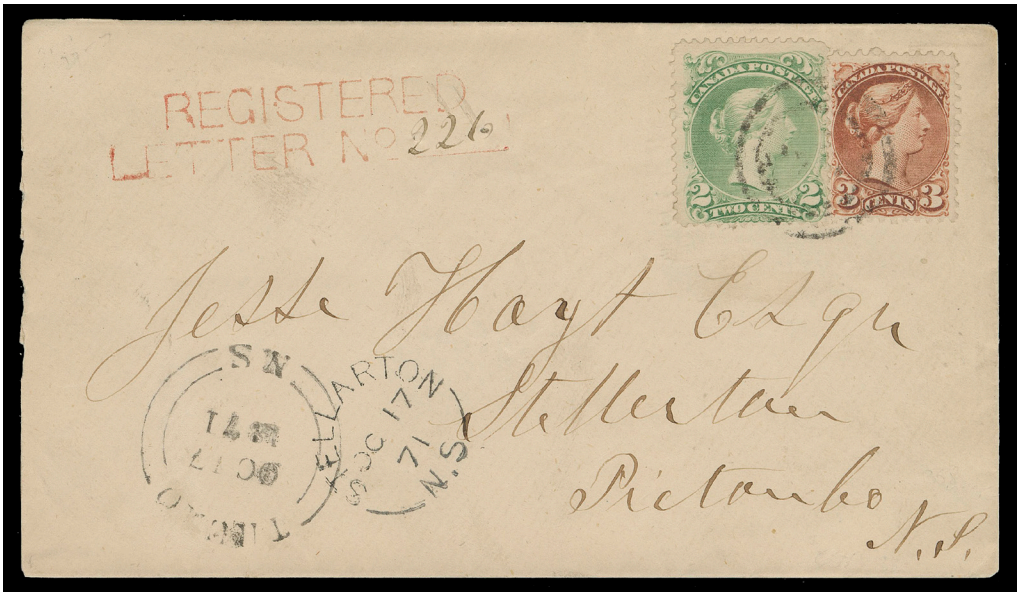 REGISTERED
LETTER No 226
CANADA POSTAGE
2 2
TWO CENTS
CANADA POSTAGE
3 3
CENTS
Jesse Hoyt Esqr
Stellerton
Pictou Co
N.S.
STELLARTON
OC 17
71
N.S
TRURO
OC 17
71
N S